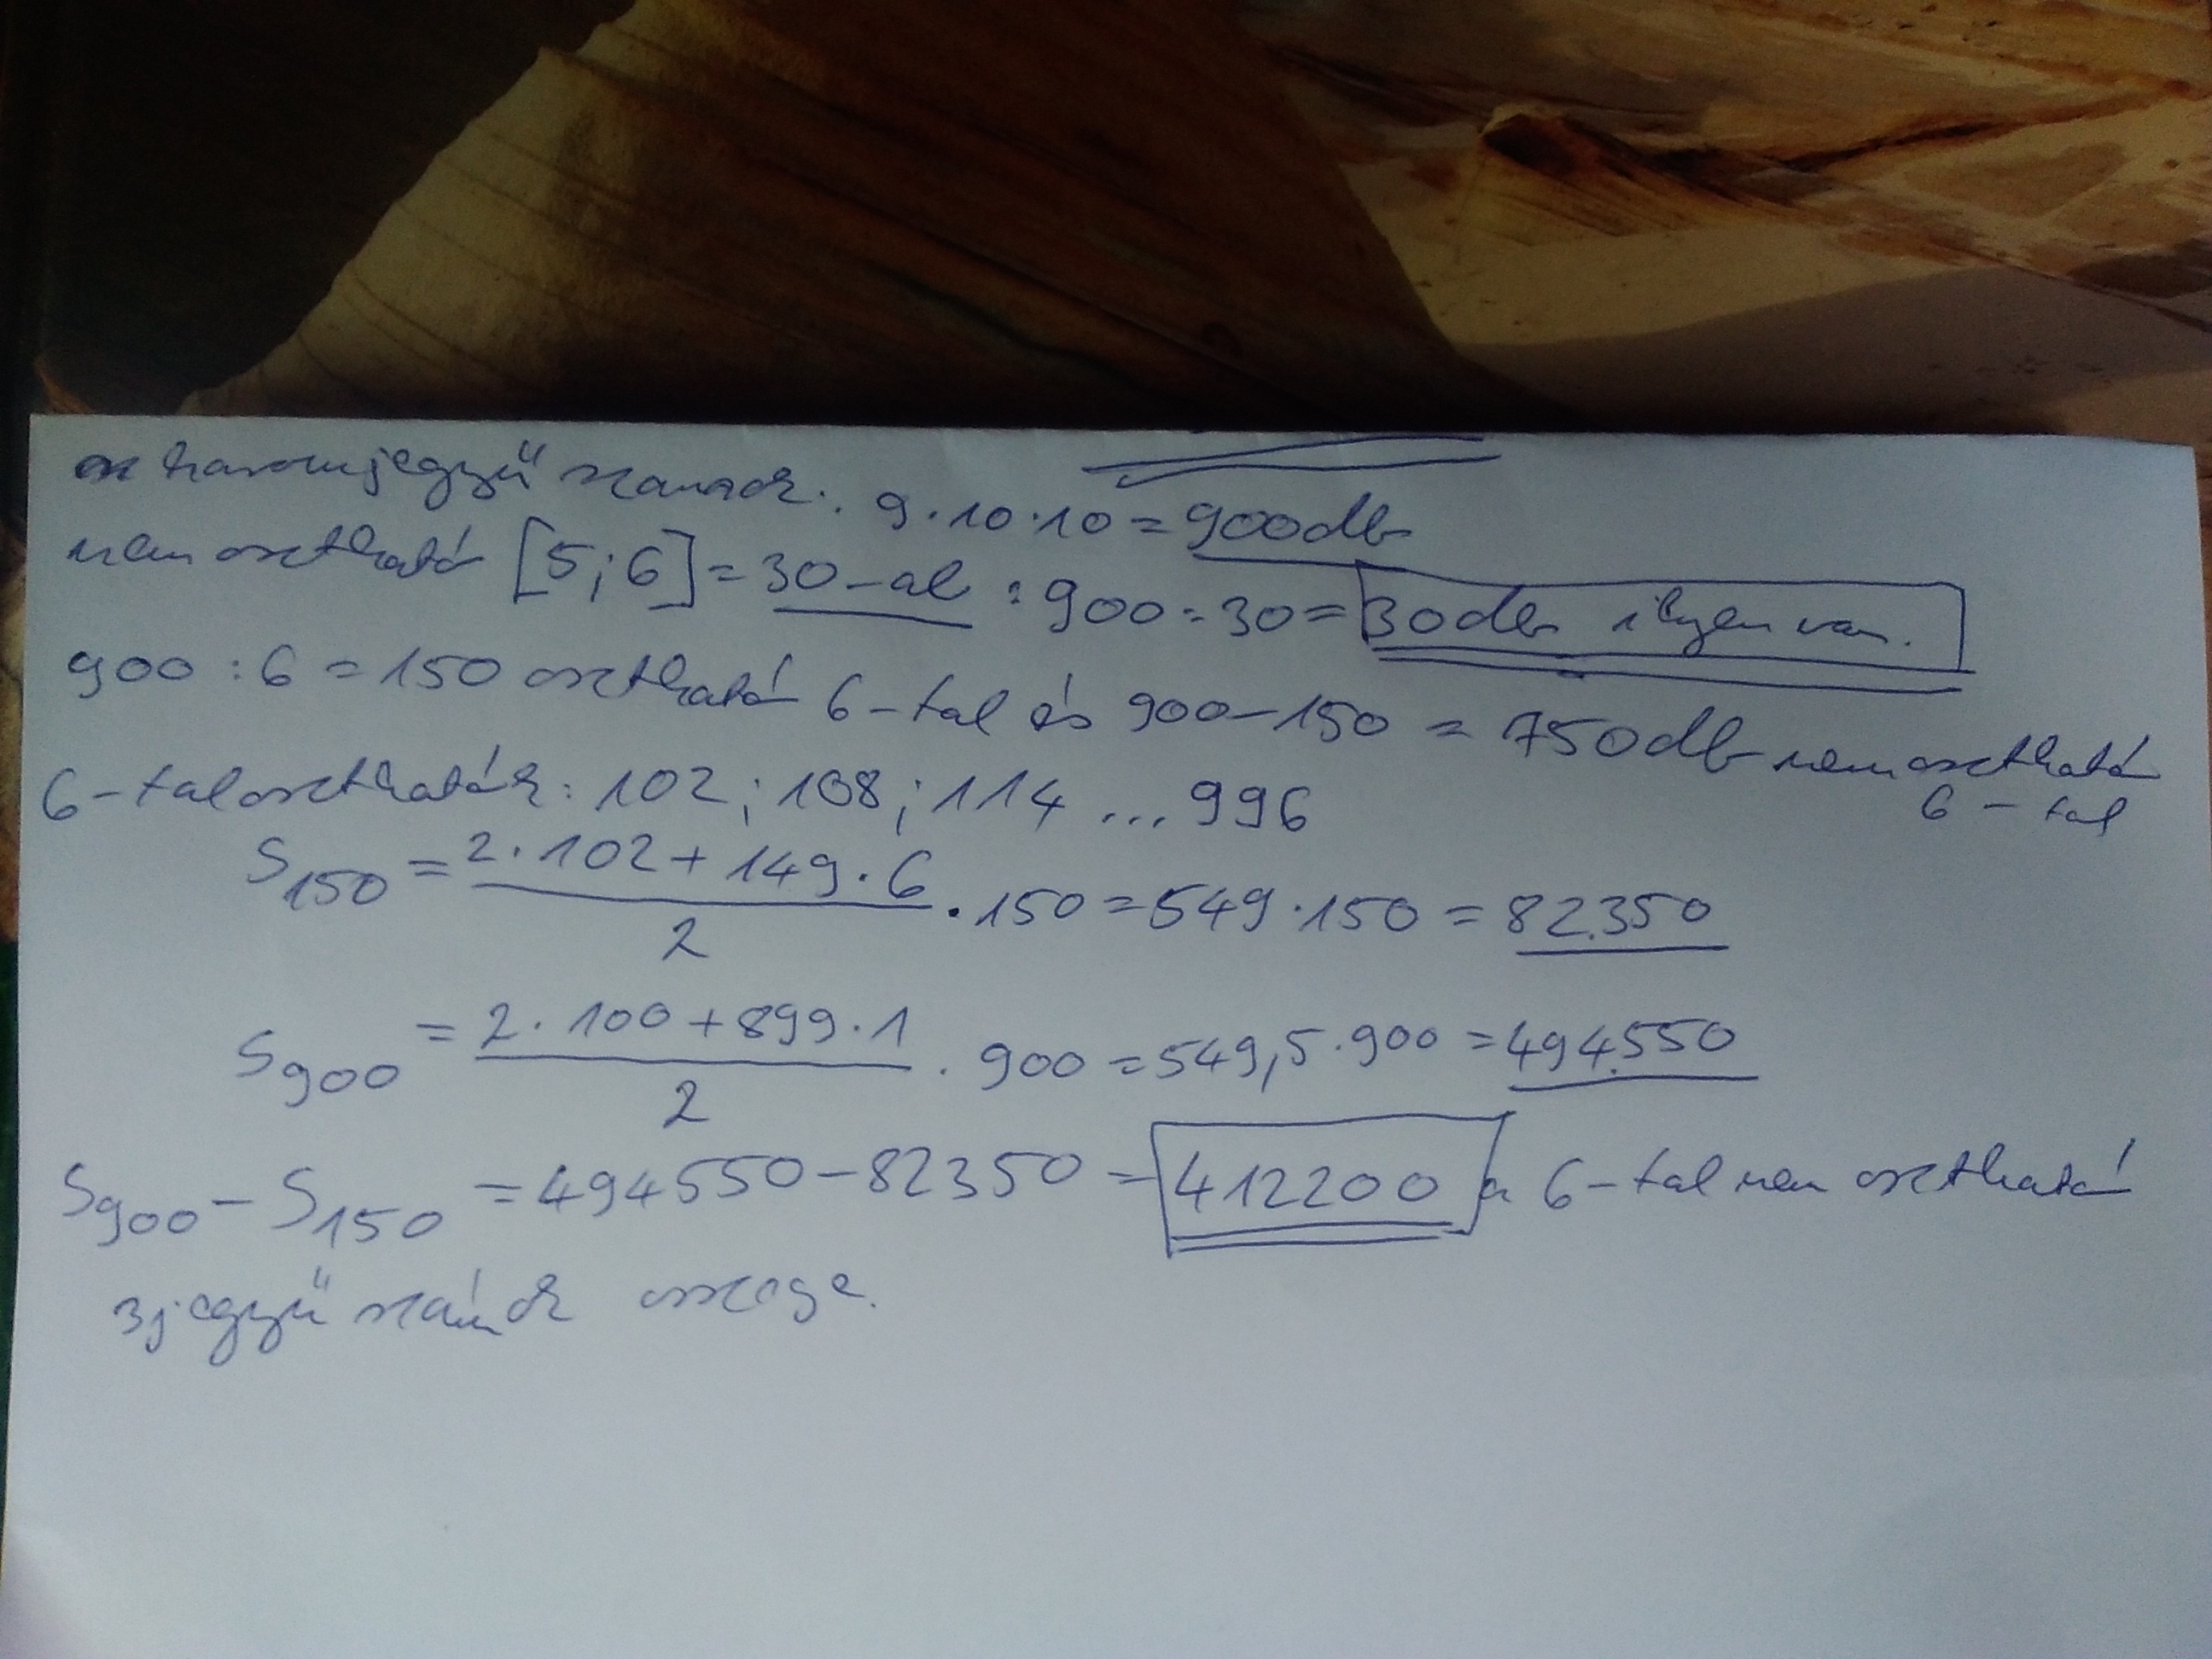 háromjegyű számok: 9·10·10=900db
nem osztható [5;6]=30-al : 900:30=30db ilyen van.
900:6=150 osztható 6-tal és 900-150=750db nem osztható
6-tal
6-tal oszthatók: 102; 108; 114 ... 996
S150 = (2·102+149·6)/2 · 150 = 549·150 = 82.350
S900 = (2·100+899·1)/2 · 900 = 549,5·900 = 494.550
S900 - S150 = 494550-82350 = 412200 a 6-tal nem osztható
3jegyű számok összege.